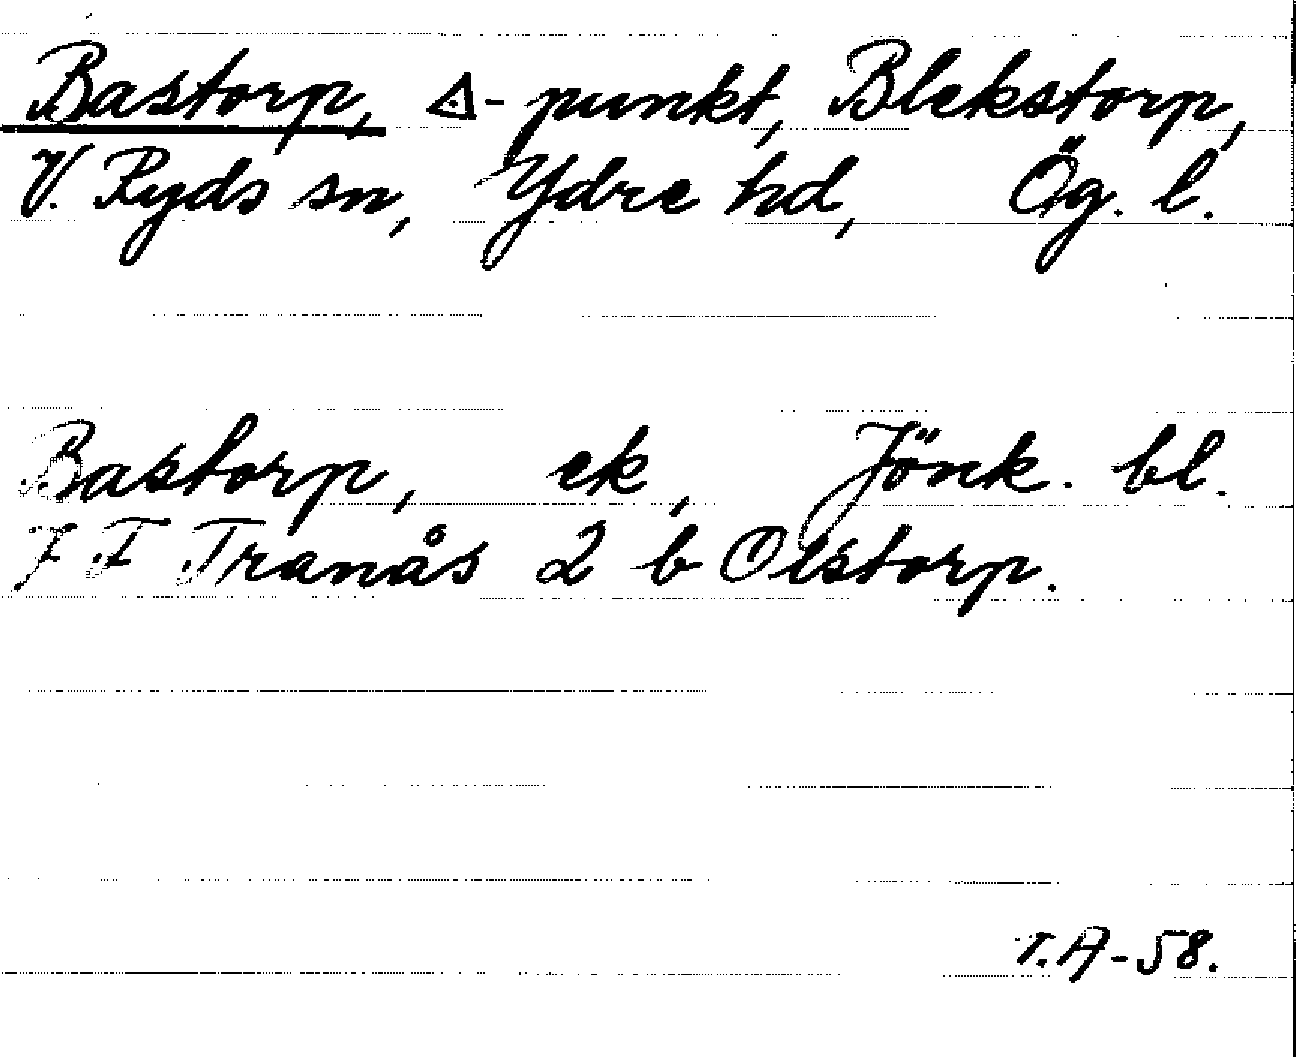 Bastorp, △-punkt, Blekstorp,
V. Ryds sn, Ydre hd, Ög. l.
Bastorp, ek, Jönk. bl.
J F Tranås 2 b Olstorp.
T.A-58.